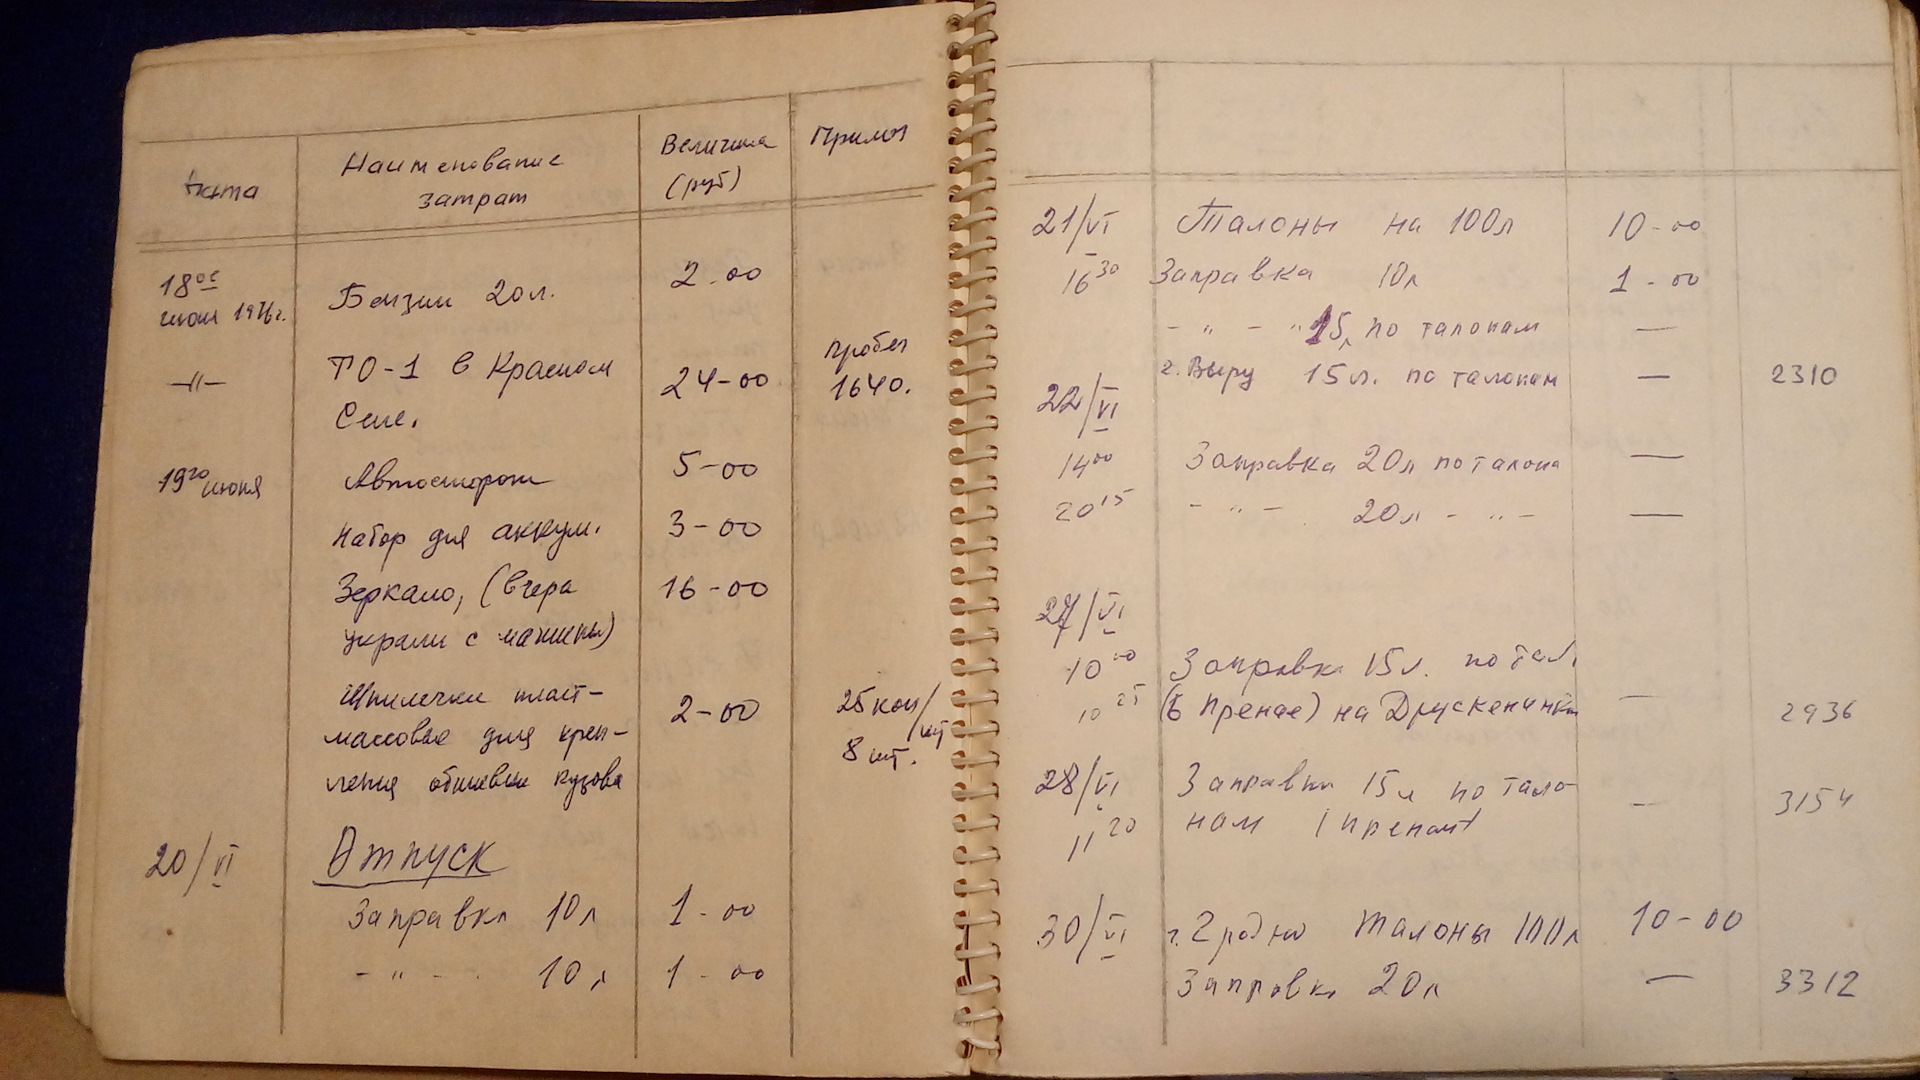 Дата Наименование затрат Величина (руб) Примеч
18ое июня 1976г. Бензин 20л. 2-00
—"— ТО-1 в Красном 24-00 Пробег 1640.
Селе.
19го июня Автосторож 5-00
Набор для аккум. 3-00
Зеркало, (вчера 16-00
украли с машины)
Шпилечки пласт- 2-00 25 коп/шт
массовые для креп- 8 шт.
ления обшивки кузова
20/VI Отпуск
Заправка 10л 1-00
- " - 10л 1-00
21/VI Талоны на 100л 10-00
16 30 Заправка 10л 1-00
- " - " 15л по талонам —
г. Выру 15л. по талонам — 2310
22/VI
14 00 Заправка 20л по талона —
20 15 - " - 20л - " - —
27/VI
10 00 Заправка 15л. по тал.
10 25 (в Пренае) на Друскенинкай — 2936
28/VI Заправка 15л по тало- — 3154
11 20 нам (Пренай)
30/VI г. Гродно Талоны 100л 10-00
Заправка 20л — 3312